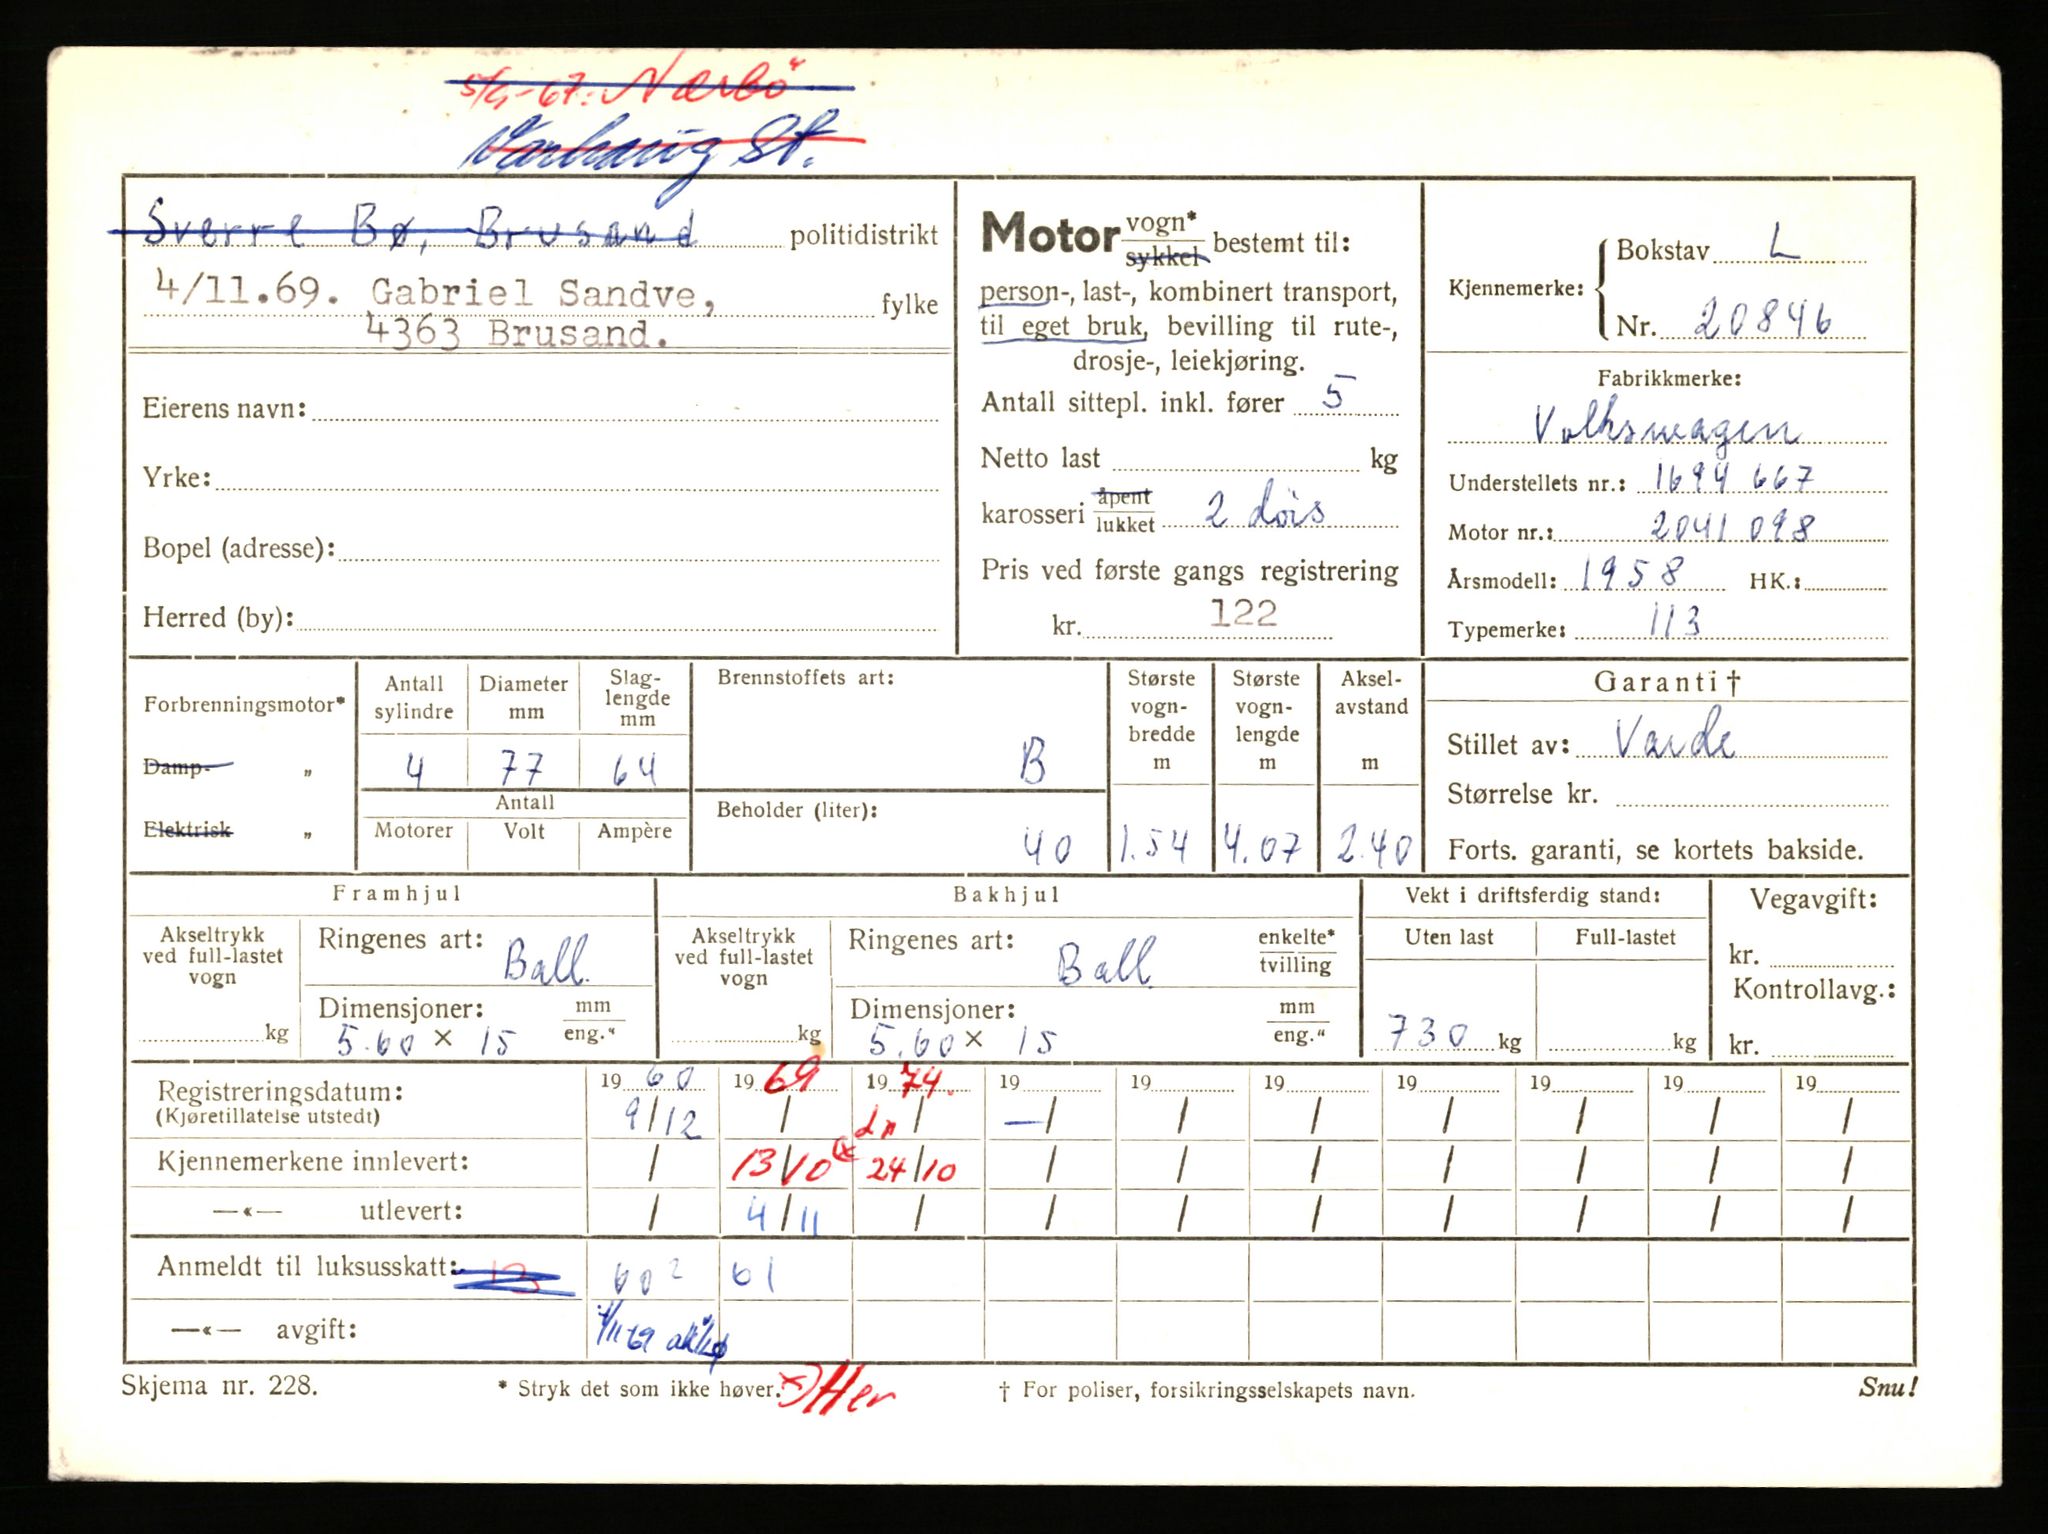 5/9-67. Nærbö
Varhaug St.
Sverre Bø, Brusand politidistrikt
4/11.69. Gabriel Sandve, fylke
4363 Brusand.
Eierens navn:
Yrke:
Bopel (adresse):
Herred (by):
Motor vogn* bestemt til:
sykkel
person-, last-, kombinert transport,
til eget bruk, bevilling til rute-,
drosje-, leiekjøring.
Antall sittepl. inkl. fører 5
Netto last kg
karosseri åpent 2 dørs
lukket
Pris ved første gangs registrering
kr. 122
Kjennemerke: Bokstav L
Nr. 20846
Fabrikkmerke:
Volkswagen
Understellets nr.: 1694 667
Motor nr.: 2041 098
Årsmodell: 1958 HK.:
Typemerke: 113
Forbrenningsmotor*
Damp- „
Elektrisk „
Antall sylindre Diameter mm Slag-lengde mm
4 77 64
Antall
Motorer Volt Ampère
Brennstoffets art:
B
Beholder (liter):
40
Største vogn-bredde m
1.54
Største vogn-lengde m
4.07
Aksel-avstand m
2.40
Garanti †
Stillet av: Varde
Størrelse kr.
Forts. garanti, se kortets bakside.
Framhjul
Akseltrykk
ved full-lastet
vogn
kg
Ringenes art:
Ball
Dimensjoner: mm
5.60 × 15 eng."
Bakhjul
Akseltrykk
ved full-lastet
vogn
kg
Ringenes art: enkelte*
Ball tvilling
Dimensjoner: mm
5.60 × 15 eng."
Vekt i driftsferdig stand:
Uten last Full-lastet
730 kg kg
Vegavgift:
kr.
Kontrollavg.:
kr.
19 60 19 69 19 74. 19 19 19 19 19 19 19
Registreringsdatum: 9/12 / / —/ / / / / / /
(Kjøretillatelse utstedt)
Kjennemerkene innlevert: / 13/10 24/10 / / / / / / /
—«— utlevert: / 4/11 / / / / / / / /
Anmeldt til luksusskatt: 60 2 61
—«— avgift: 4/11-69
Skjema nr. 228. * Stryk det som ikke høver. x) Her † For poliser, forsikringsselskapets navn. Snu!